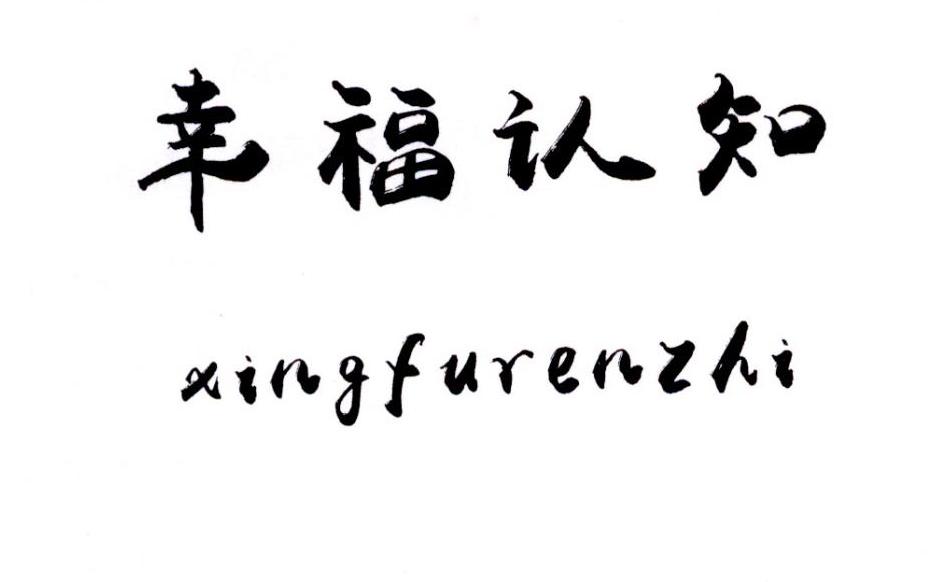 幸福认知
xingfurenzhi